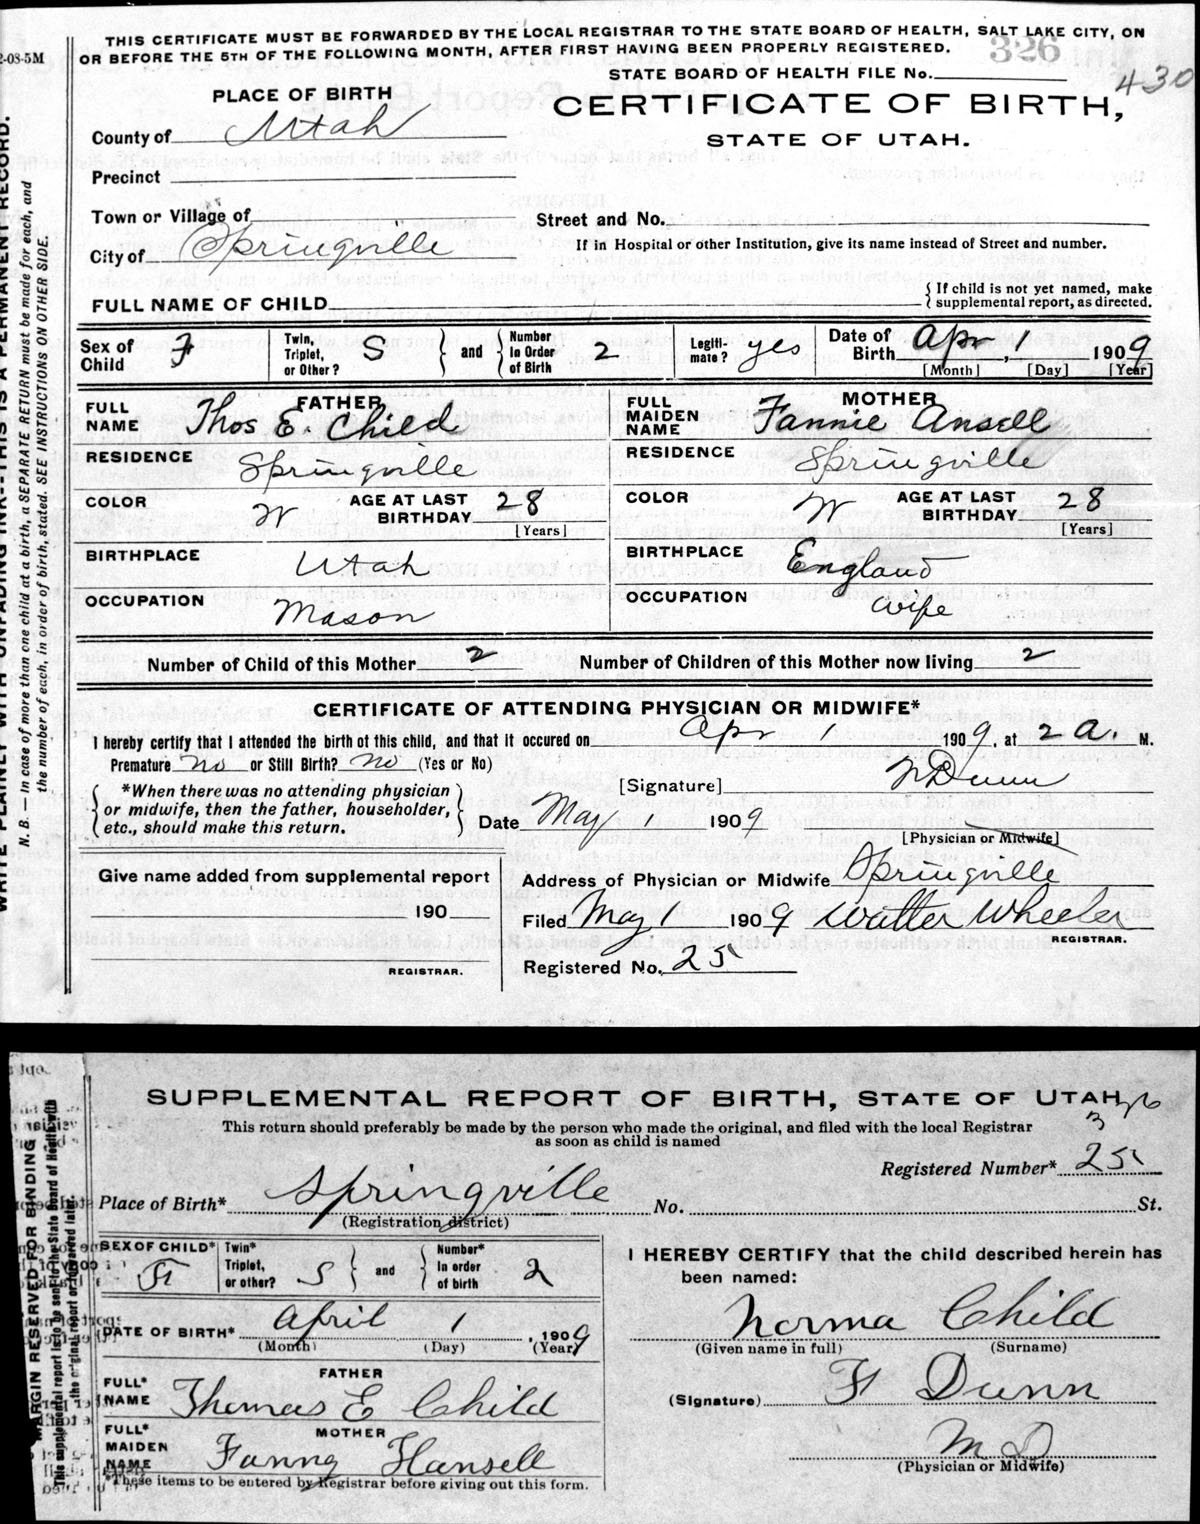 THIS CERTIFICATE MUST BE FORWARDED BY THE LOCAL REGISTRAR TO THE STATE BOARD OF HEALTH, SALT LAKE CITY, ON
OR BEFORE THE 5TH OF THE FOLLOWING MONTH, AFTER FIRST HAVING BEEN PROPERLY REGISTERED.
2-08-5M
326
STATE BOARD OF HEALTH FILE No.
430
PLACE OF BIRTH
CERTIFICATE OF BIRTH,
STATE OF UTAH.
County of Utah
Precinct
Town or Village of
Street and No.
City of Springville
If in Hospital or other Institution, give its name instead of Street and number.
FULL NAME OF CHILD
{ If child is not yet named, make
{ supplemental report, as directed.
Sex of Child F
Twin, Triplet, or Other? S } and { Number In Order of Birth 2
Legiti-mate? yes
Date of Birth Apr, 1 1909
[Month] [Day] [Year]
FATHER
FULL NAME Thos E. Child
MOTHER
FULL MAIDEN NAME Fannie Ansell
RESIDENCE Springville
RESIDENCE Springville
COLOR W AGE AT LAST BIRTHDAY 28 [Years]
COLOR W AGE AT LAST BIRTHDAY 28 [Years]
BIRTHPLACE Utah
BIRTHPLACE England
OCCUPATION Mason
OCCUPATION wife
Number of Child of this Mother 2 Number of Children of this Mother now living 2
CERTIFICATE OF ATTENDING PHYSICIAN OR MIDWIFE*
I hereby certify that I attended the birth of this child, and that it occured on Apr 1 1909, at 2 a. M.
Premature no or Still Birth? no (Yes or No)
[Signature] Dunn
{ *When there was no attending physician
or midwife, then the father, householder,
etc., should make this return. }
Date May 1 1909
[Physician or Midwife]
Give name added from supplemental report
190
REGISTRAR.
Address of Physician or Midwife Springville
Filed May 1 1909 Walter Wheeler
REGISTRAR.
Registered No. 25
WRITE PLAINLY WITH UNFADING INK--THIS IS A PERMANENT RECORD.
N. B.— In case of more than one child at a birth, a SEPARATE RETURN must be made for each, and
the number of each, in order of birth, stated. SEE INSTRUCTIONS ON OTHER SIDE.
SUPPLEMENTAL REPORT OF BIRTH, STATE OF UTAH
326
This return should preferably be made by the person who made the original, and filed with the local Registrar
as soon as child is named
Registered Number* 25
Place of Birth* Springville No. St.
(Registration district)
SEX OF CHILD* F
Twin* Triplet, or other? S } and { Number* In order of birth 2
DATE OF BIRTH* April 1, 1909
(Month) (Day) (Year)
FATHER
FULL* NAME Thomas E Child
MOTHER
FULL* MAIDEN NAME Fanny Hansell
*These items to be entered by Registrar before giving out this form.
I HEREBY CERTIFY that the child described herein has
been named:
Norma Child
(Given name in full) (Surname)
(Signature) F Dunn
M D
(Physician or Midwife)
MARGIN RESERVED FOR BINDING
This supplemental report is to be sent to the State Board of Health with
the original report or forwarded later.